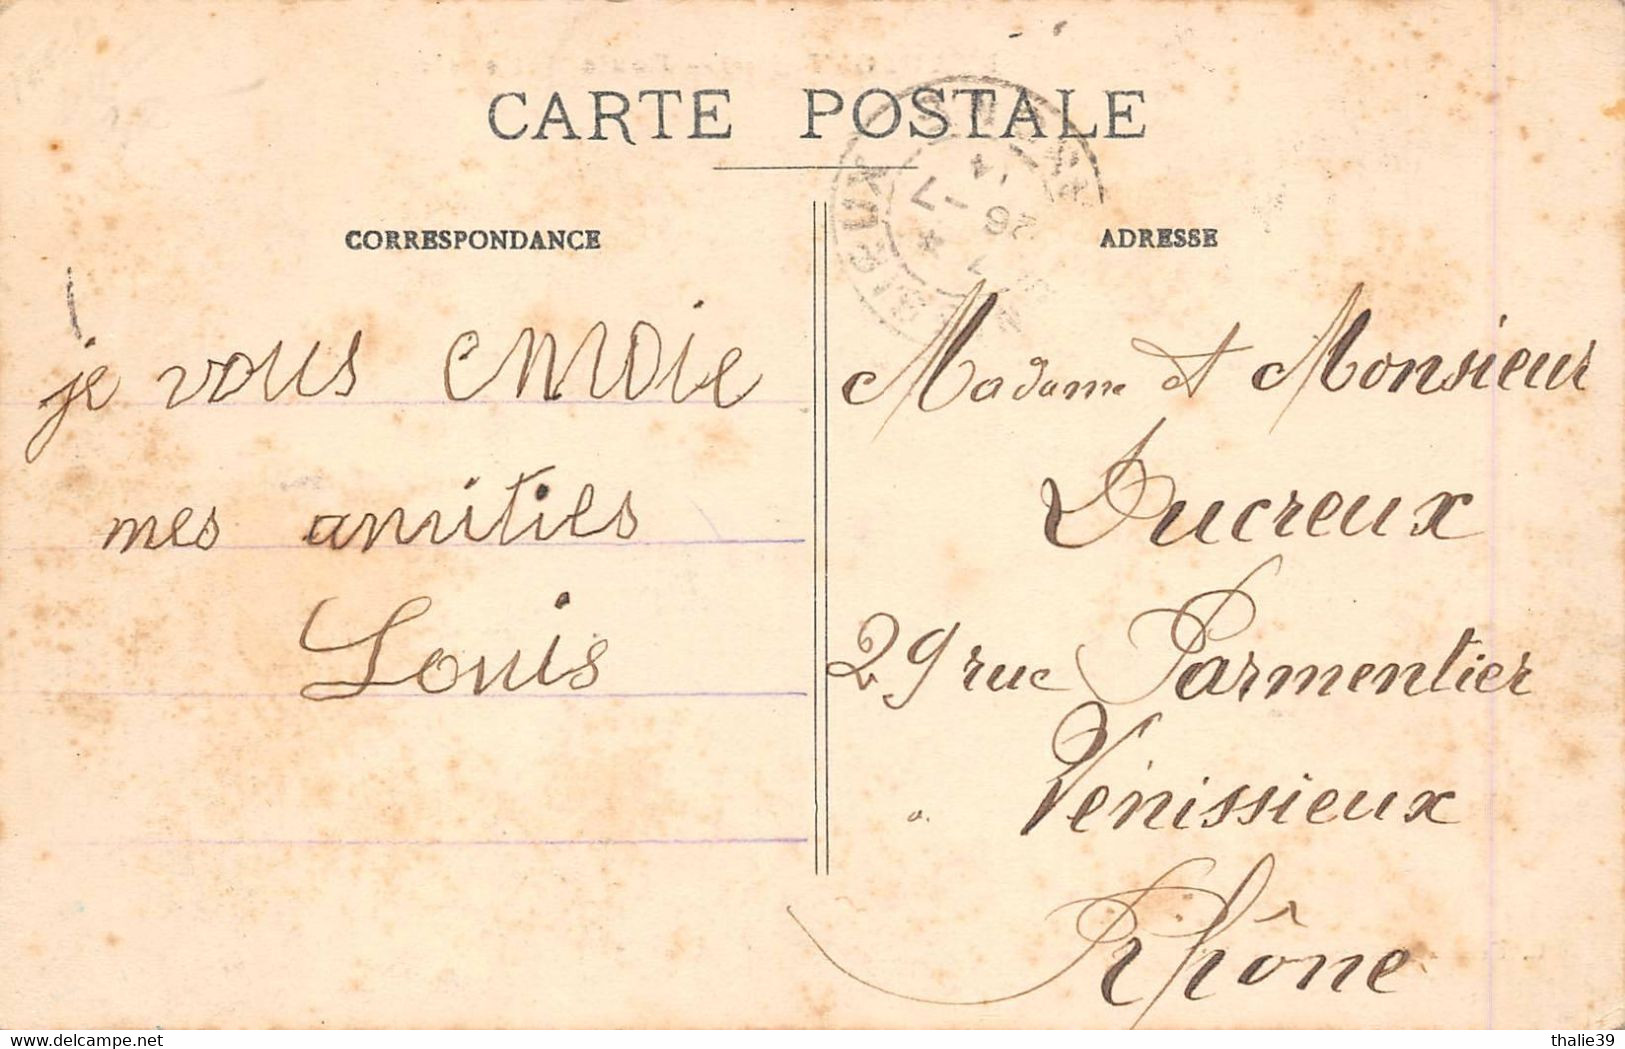 CARTE POSTALE
CORRESPONDANCE
je vous envoie
mes amitiés
Louis
ADRESSE
Madame et Monsieur
Ducreux
29 rue Parmentier
Vénissieux
Rhône
www.delcampe.net
thalie39